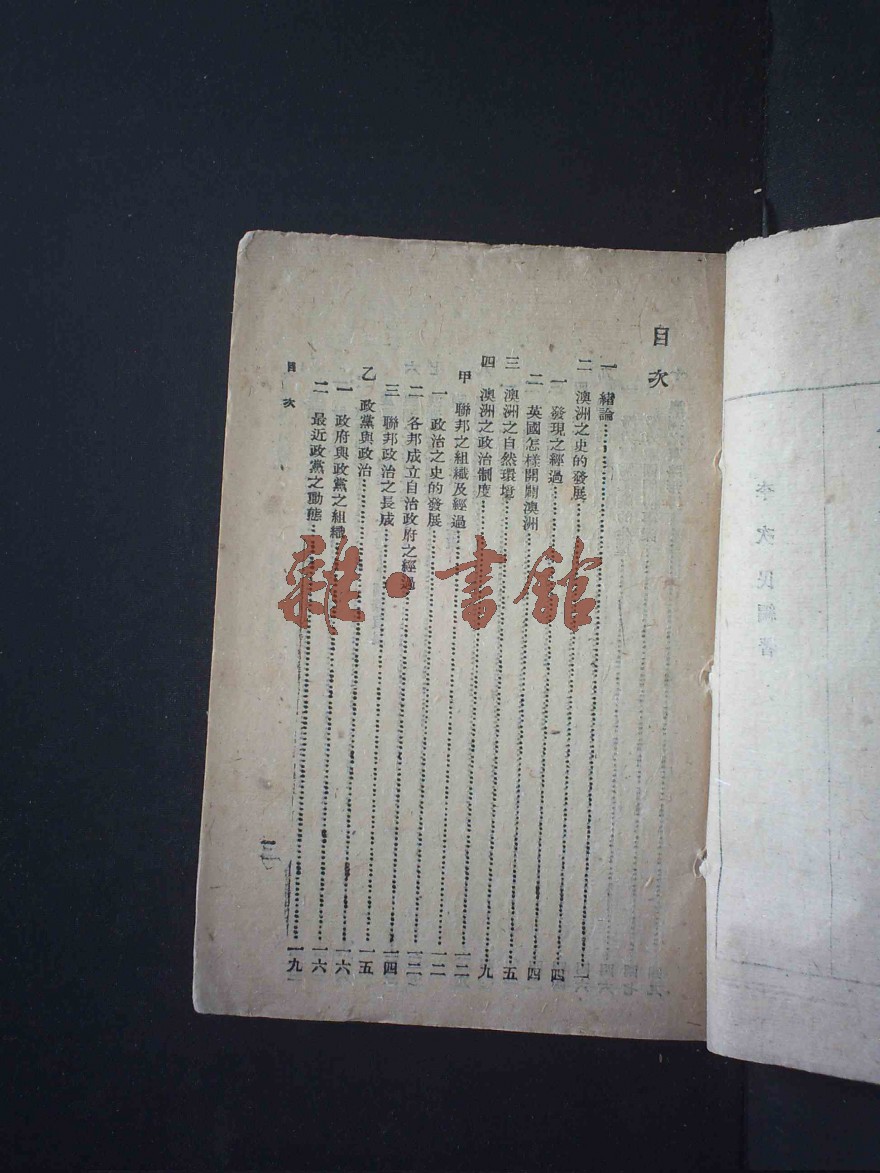 目次
一 緒論
二 澳洲之史的發展……四
一 發現之經過……四
二 英國怎樣開闢澳洲……五
三 澳洲之自然環境……九
四 澳洲之政治制度……一二
甲 聯邦之組織及經過……一二
一 政治之史的發展……一二
二 各邦成立自治政府之經過……一四
三 聯邦政治之長成……一五
乙 政黨與政治……一六
一 政府與政黨之組織……一六
二 最近政黨之動態……一九
目次
雜·書館
李次民編著